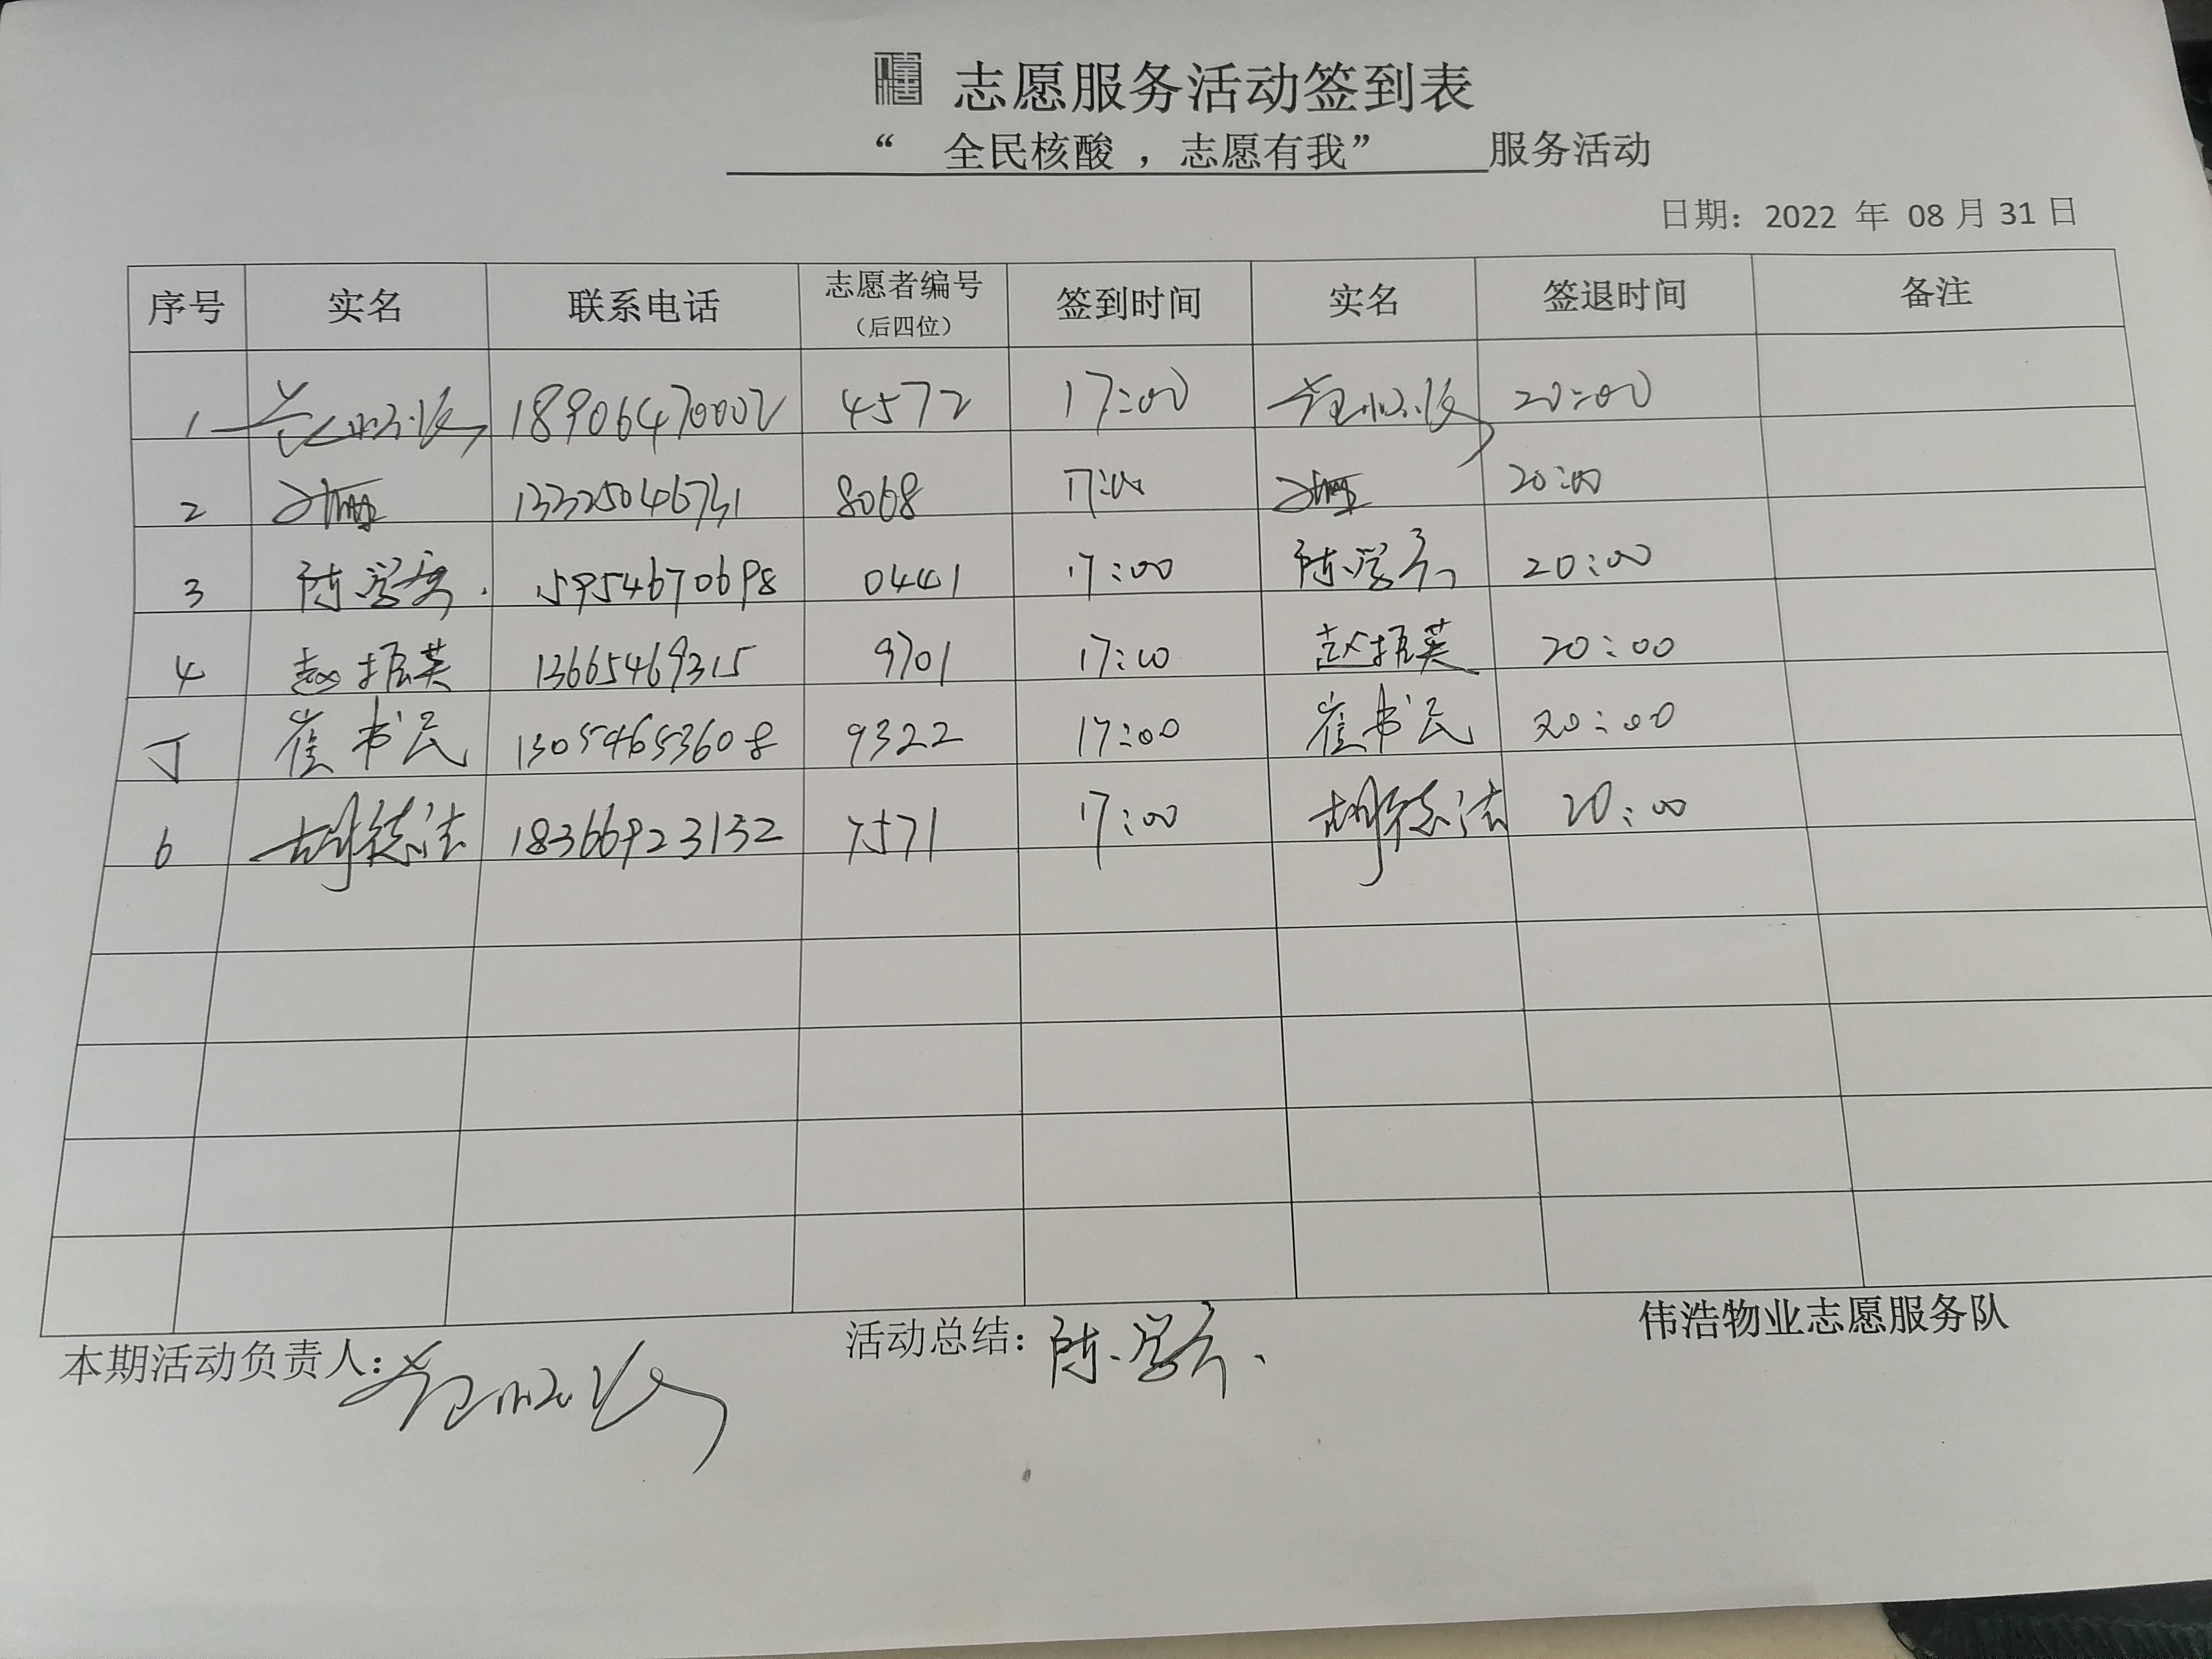 志愿服务活动签到表
“ 全民核酸 ，志愿有我” 服务活动
日期：2022 年 08 月 31 日
序号 实名 联系电话 志愿者编号（后四位） 签到时间 实名 签退时间 备注
1 18906470002 4572 17:00 20:00
2 13325046731 8068 17:00 20:00
3 陈学 15954670698 0441 17:00 陈学 20:00
4 赵振英 13665469315 9701 17:00 赵振英 20:00
5 崔书民 13054653608 9322 17:00 崔书民 20:00
6 胡德法 18366923132 7571 17:00 胡德法 20:00
本期活动负责人： 活动总结：陈学 伟浩物业志愿服务队